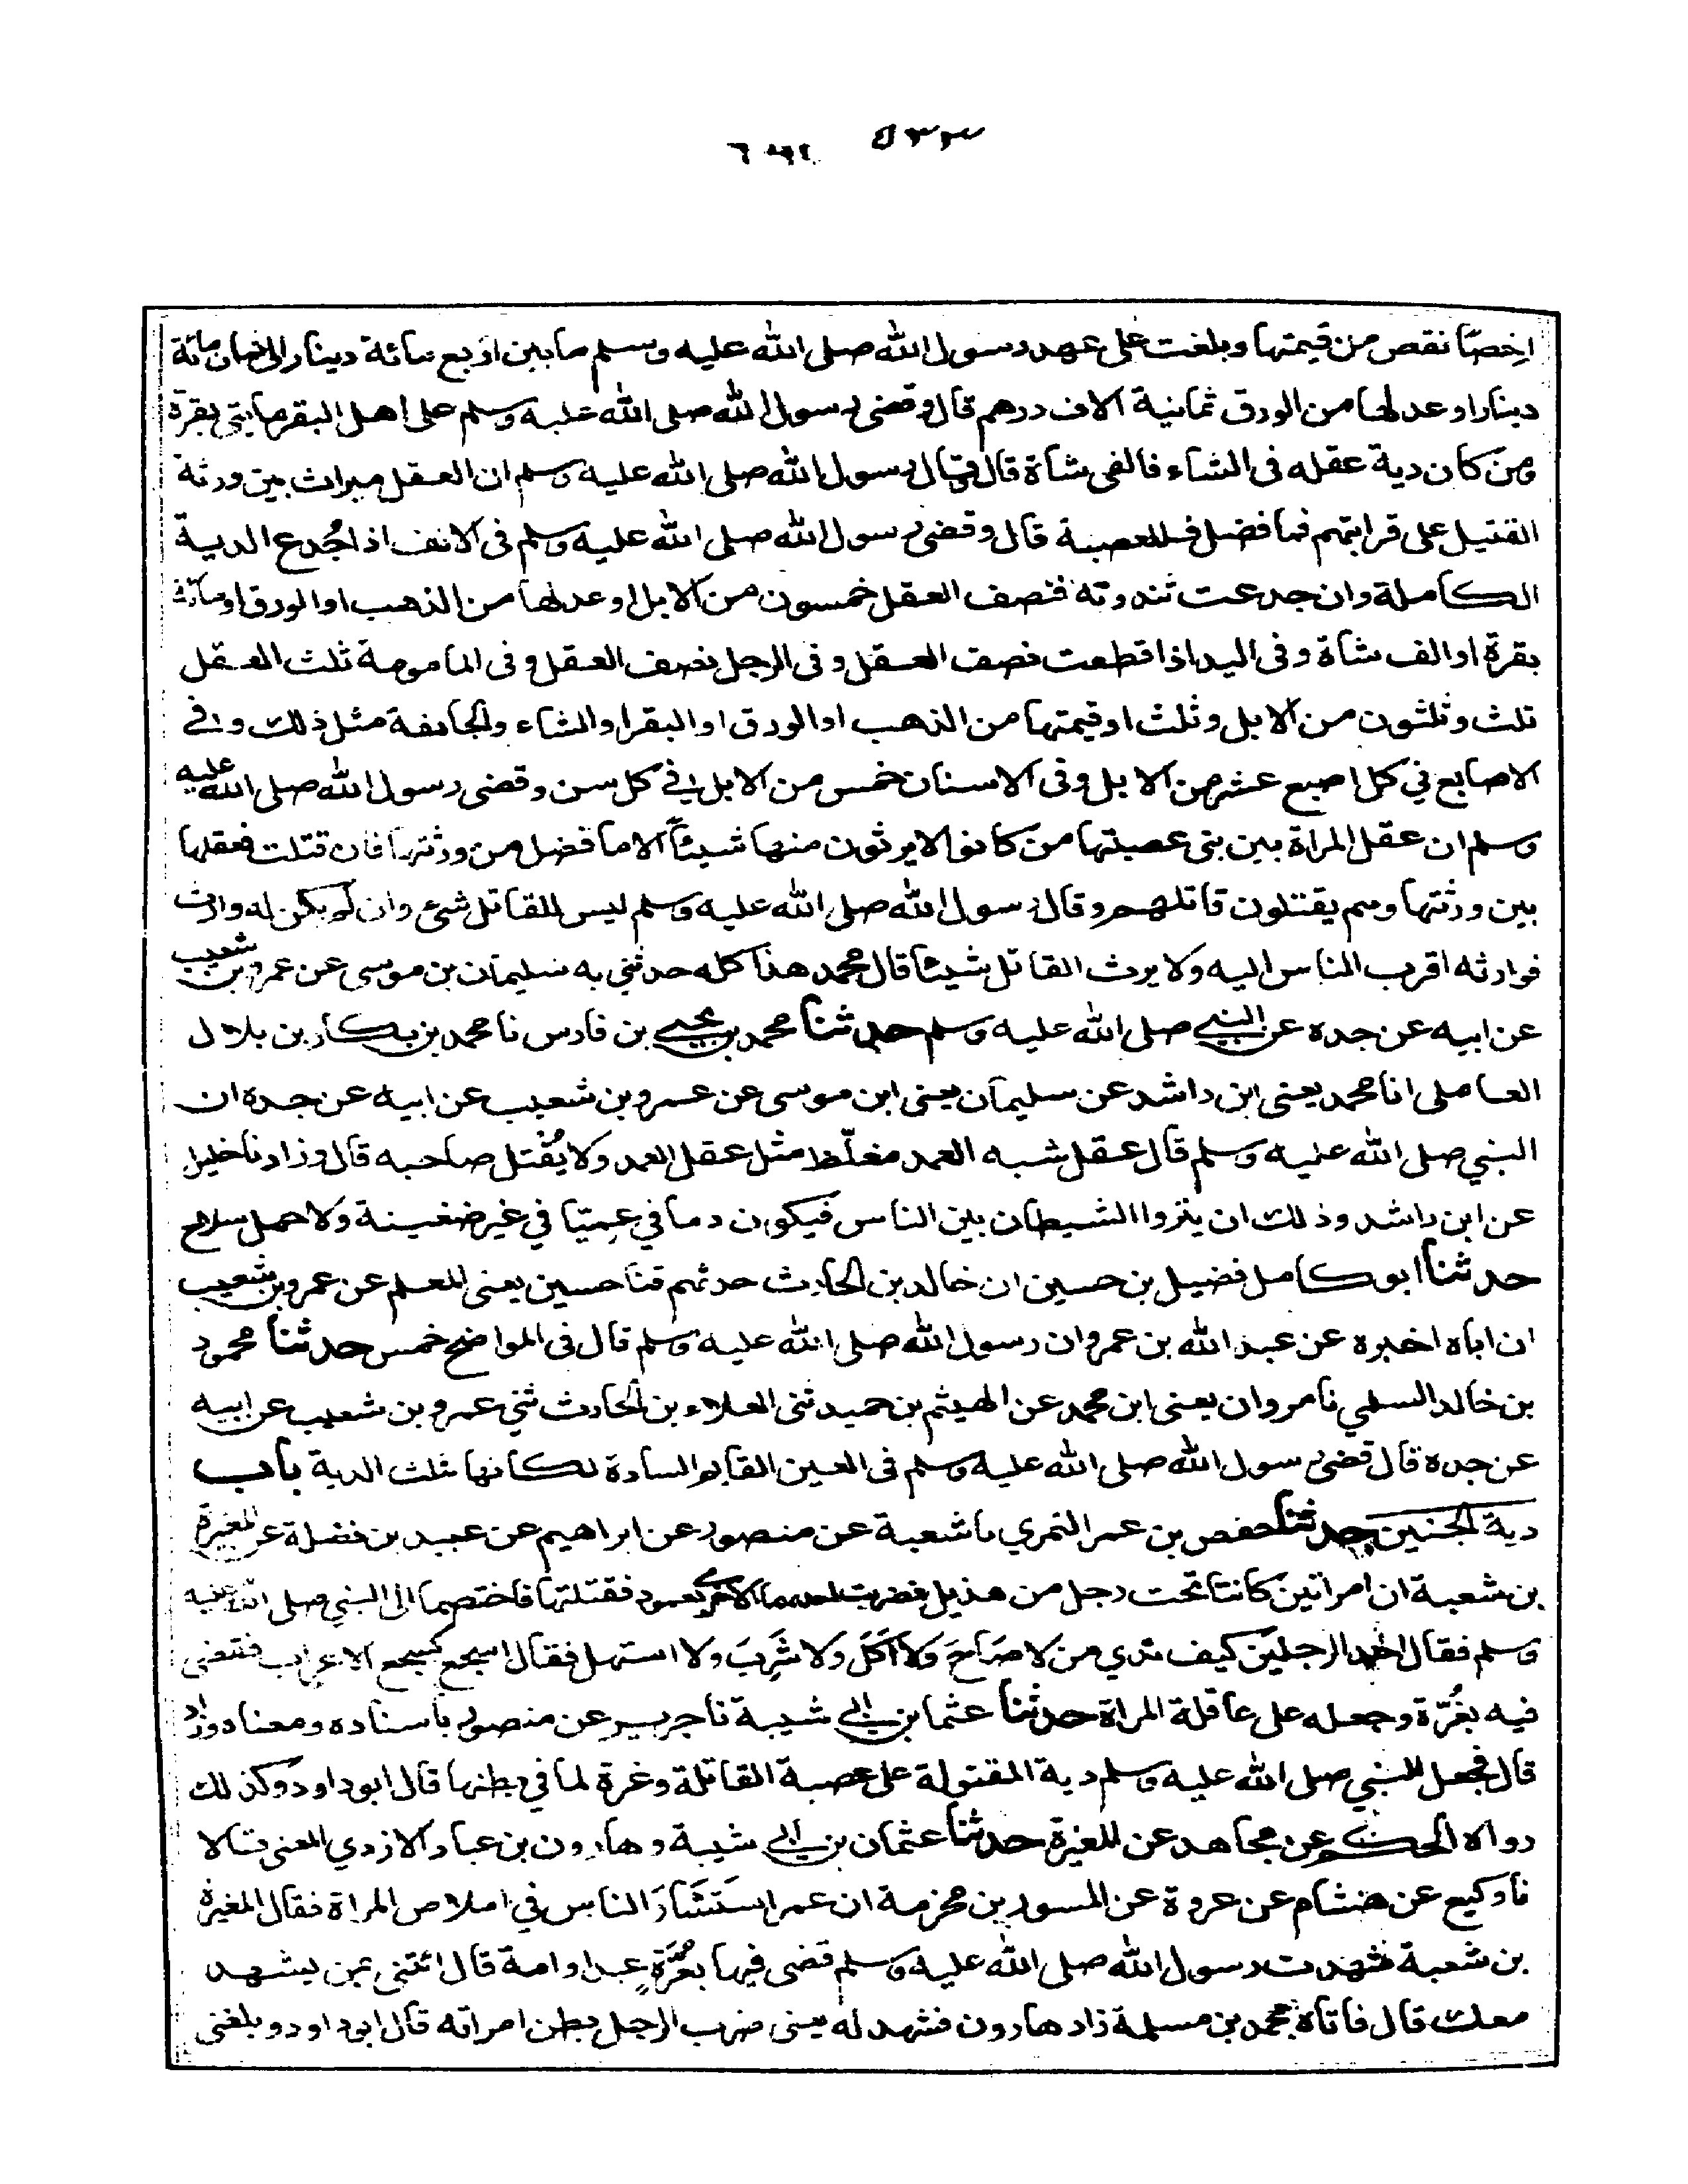 رخصا نقص من قيمتها وبلغت على عهد رسول الله صلى الله عليه وسلم ما بين اربع مائة دينار الى ثمان مائة
دينار او عدلها من الورق ثمانية الاف درهم قال وقضى رسول الله صلى الله عليه وسلم على اهل البقر مايتى بقرة
ومن كان دية عقله فى الشاء فالفى شاة قال وقال رسول الله صلى الله عليه وسلم ان العقل ميراث بين ورثة
القتيل على قرابتهم فما فضل فللعصبة قال وقضى رسول الله صلى الله عليه وسلم فى الانف اذا جُدع الدية
الكاملة وان جدعت ثندوته فنصف العقل خمسون من الابل او عدلها من الذهب او الورق او مائة
بقرة او الف شاة وفى اليد اذا قطعت نصف العقل وفى الرجل نصف العقل وفى المامومة ثلث العقل
ثلث وثلثون من الابل وثلث او قيمتها من الذهب او الورق او البقر او الشاء والجائفة مثل ذلك وفي
الاصابع في كل اصبع عشر من الابل وفى الاسنان خمس من الابل في كل سن وقضى رسول الله صلى الله عليه
وسلم ان عقل المراة بين بنى عصبتها من كانوا لا يرثون منها شيئاً الا ما فضل من ورثتها فان قتلت فعقلها
بين ورثتها وهم يقتلون قاتلهم وقال رسول الله صلى الله عليه وسلم ليس للقاتل شئ وان لم يكن له وارث
فوارثه اقرب الناس اليه ولا يرث القاتل شيئا قال محمد هذا كله حدثني به سليمان بن موسى عن عمرو بن شعيب
عن ابيه عن جده عن النبي صلى الله عليه وسلم حدثنا محمد بن يحيى بن فارس نا محمد بن بكار بن بلال
العاملى انا محمد يعنى ابن راشد عن سليمان يعنى ابن موسى عن عمرو بن شعيب عن ابيه عن جده ان
النبي صلى الله عليه وسلم قال عقل شبه العمد مغلّظ مثل عقل العمد ولا يُقتل صاحبه قال وزادنا خليل
عن ابن راشد وذلك ان ينزوا الشيطان بين الناس فيكون دما في عِمِيّا في غير ضغينة ولا حمل سلاح
حدثنا ابو كامل فضيل بن حسين ان خالد بن الحارث حدثهم قنا حسين يعنى المعلم عن عمرو بن شعيب
ان اباه اخبره عن عبد الله بن عمرو ان رسول الله صلى الله عليه وسلم قال فى المواضح خمس حدثنا محمود
بن خالد السلمي نا مروان يعنى ابن محمد عن الهيثم بن حميد ثنى العلاء بن الحارث ثني عمرو بن شعيب عن ابيه
عن جده قال قضى رسول الله صلى الله عليه وسلم فى العين القائمة السادة لمكانها ثلث الدية باب
دية الجنين حدثنا حفص بن عمر النمري نا شعبة عن منصور عن ابراهيم عن عبيد بن نضلة عن المغيرة
بن شعبة ان امراتين كانتا تحت رجل من هذيل فضربت احدهما الاخرى بعمود فقتلتها فاختصما الى النبي صلى الله عليه
وسلم فقال احد الرجلين كيف ندي من لا صَاحَ وَلا اَكَلَ ولا شَرِبَ ولا استهل فقال اسجع كسجع الاعراب فقضى
فيه بغُرّة وجعله على عاقلة المراة حدثنا عثمان بن ابي شيبة نا جرير عن منصور باسناده ومعناه وزاد
قال فجعل النبي صلى الله عليه وسلم دية المقتولة على عصبة القاتلة وغرة لما في بطنها قال ابو داود وكذلك
رواه الحكم عن مجاهد عن المغيرة حدثنا عثمان بن ابي شيبة وهارون بن عباد الازدي المعنى قالا
نا وكيع عن هشام عن عروة عن المسور بن مخرمة ان عمر استَشَارَ الناس في املاص المراة فقال المغيرة
بن شعبة شهدت رسول الله صلى الله عليه وسلم قضى فيها بغُرّةٍ عبد او امة قال ائتنى بمن يشهد
معك قال فاتاه بمحمد بن مسلمة زاد هارون فشهد له يعنى ضرب الرجل بطن امراته قال ابو داود وبلغنى